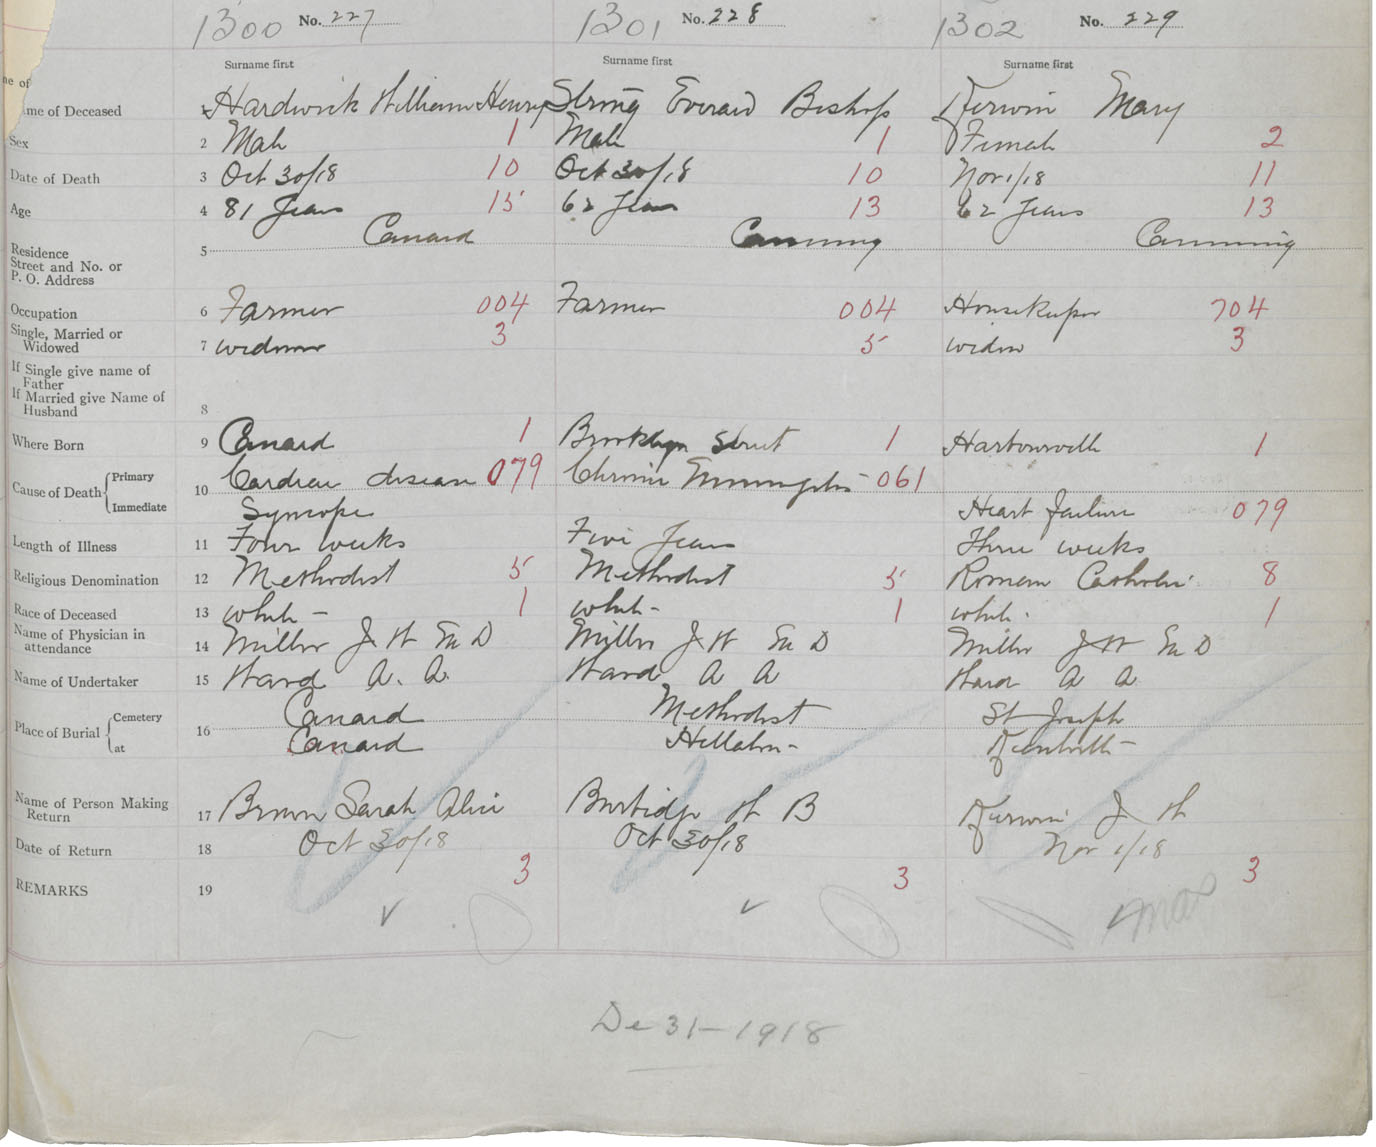 1300 No. 227 1301 No. 228 1302 No. 229
Surname first Surname first Surname first
me of
me of Deceased 1 Hardwick William Henry Strong Everard Bishop Kerwin Mary
Sex 2 Male 1 Male 1 Female 2
Date of Death 3 Oct 30/18 10 Oct 30/18 10 Nov 1/18 11
Age 4 81 Years 15 62 Years 13 62 Years 13
Residence
Street and No. or
P. O. Address 5 Canard Canning Canning
Occupation 6 Farmer 004 Farmer 004 Housekeeper 704
Single, Married or
Widowed 7 widower 3 5 widow 3
If Single give name of
Father
If Married give Name of
Husband 8
Where Born 9 Canard 1 Brooklyn Street 1 Harbourville 1
Cause of Death Primary 10 Cardiac disease 079 Chronic 061
Immediate Syncope Heart failure 079
Length of Illness 11 Four weeks Five Years Three weeks
Religious Denomination 12 Methodist 5 Methodist 5 Roman Catholic 8
Race of Deceased 13 white 1 white 1 white 1
Name of Physician in
attendance 14 Miller J H M D Miller J H M D Miller J H M D
Name of Undertaker 15 Ward A. A. Ward A A Ward A A
Place of Burial Cemetery 16 Canard Methodist St Joseph
at Canard Hillaton Kentville
Name of Person Making
Return 17 Brown Sarah Alice Burbidge H B Kerwin J H
Date of Return 18 Oct 30/18 Oct 30/18 Nov 1/18
REMARKS 19 3 3 3
De 31-1918